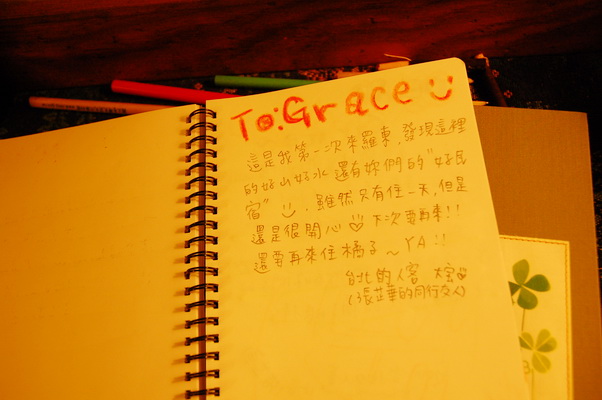 To: Grace
這是我第一次來羅東，發現這裡
的好山好水還有妳們的"好民
宿"，雖然只有住一天，但是
還是很開心 下次要再來!!
還要再來住橘子~YA!!
台北的人客
的同行友人)